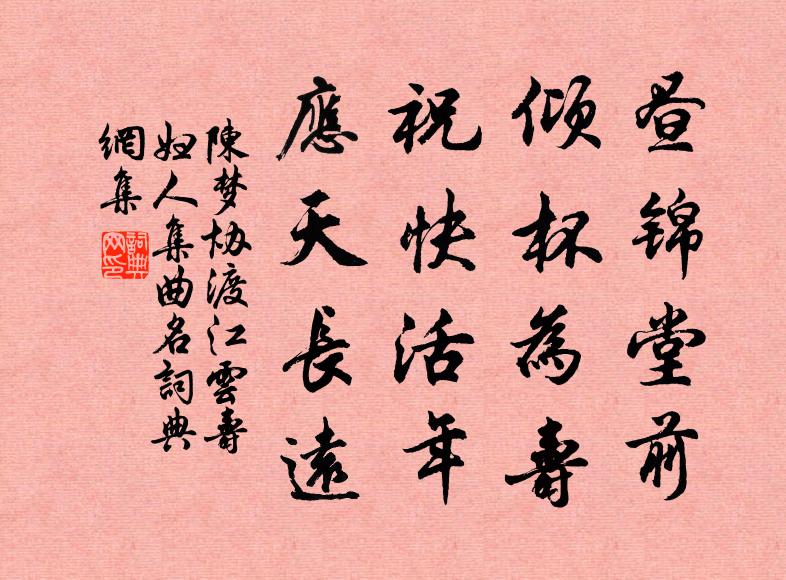 昼锦堂前
倾杯為壽
祝快活年
應天長遠
陳梦协渡江雲壽
妇人集曲名詞典
網集
詞典
网印